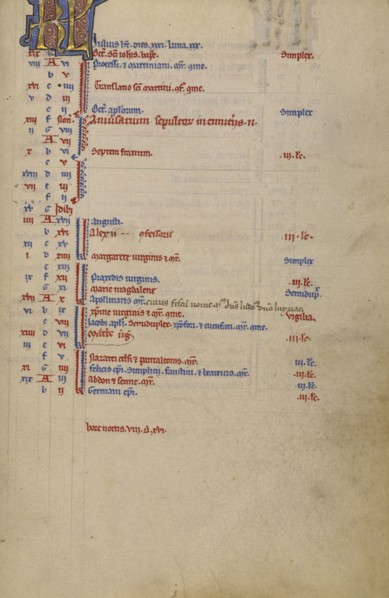 KL Iulius ht. dies. xxxi. luna. xxx.
xix g Oct. sci iohis. bapt. Simplex.
viii A vi Processi. & martiniani. mr. qme.
b v
xvi c iiii Translatio sci martini. qme.
v d iii
e ii Oct. aplorum. Simplex
xiii f non Anniversarium sepultor in
ii g viii
A vii
x b vi Septem fratrum. iii. lc.
c v
xviii d iiii
vii e iii
f ii
xv g idus
iiii A xvii augusti.
b xvi Alexii confessoris iii. lc.
xii c xv
i d xiiii margarete virginis & mr. Simplex
e xiii
ix f xii Praxedis virginis. iii. lc.
g xi marie magdalene Semidup.
xvii A x Apollinaris
vi b ix xpine virginis & mr. qme. Vigilia.
c viii iacobi apli. Semiduplex. xpofori. & cucufati. mr. qme.
xiiii d vii iii. lc.
iii e vi
f v Nazarii celsi & pantaleonis. mr. iii. lc.
xi g iiii felicis epi. simplicii. faustini. & beatricis. mr. iii. lc.
xix A iii abdon & senne. mr. iii. lc.
b ii Germani epi. iii. lc.
hore noctis. viii. d. xvi.